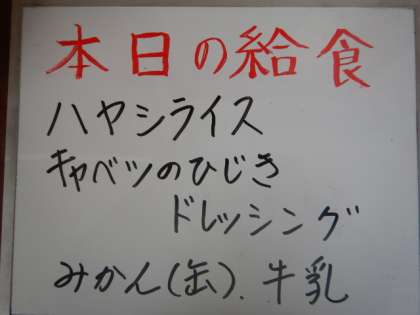 本日の給食
ハヤシライス
キャベツのひじき
ドレッシング
みかん(缶). 牛乳